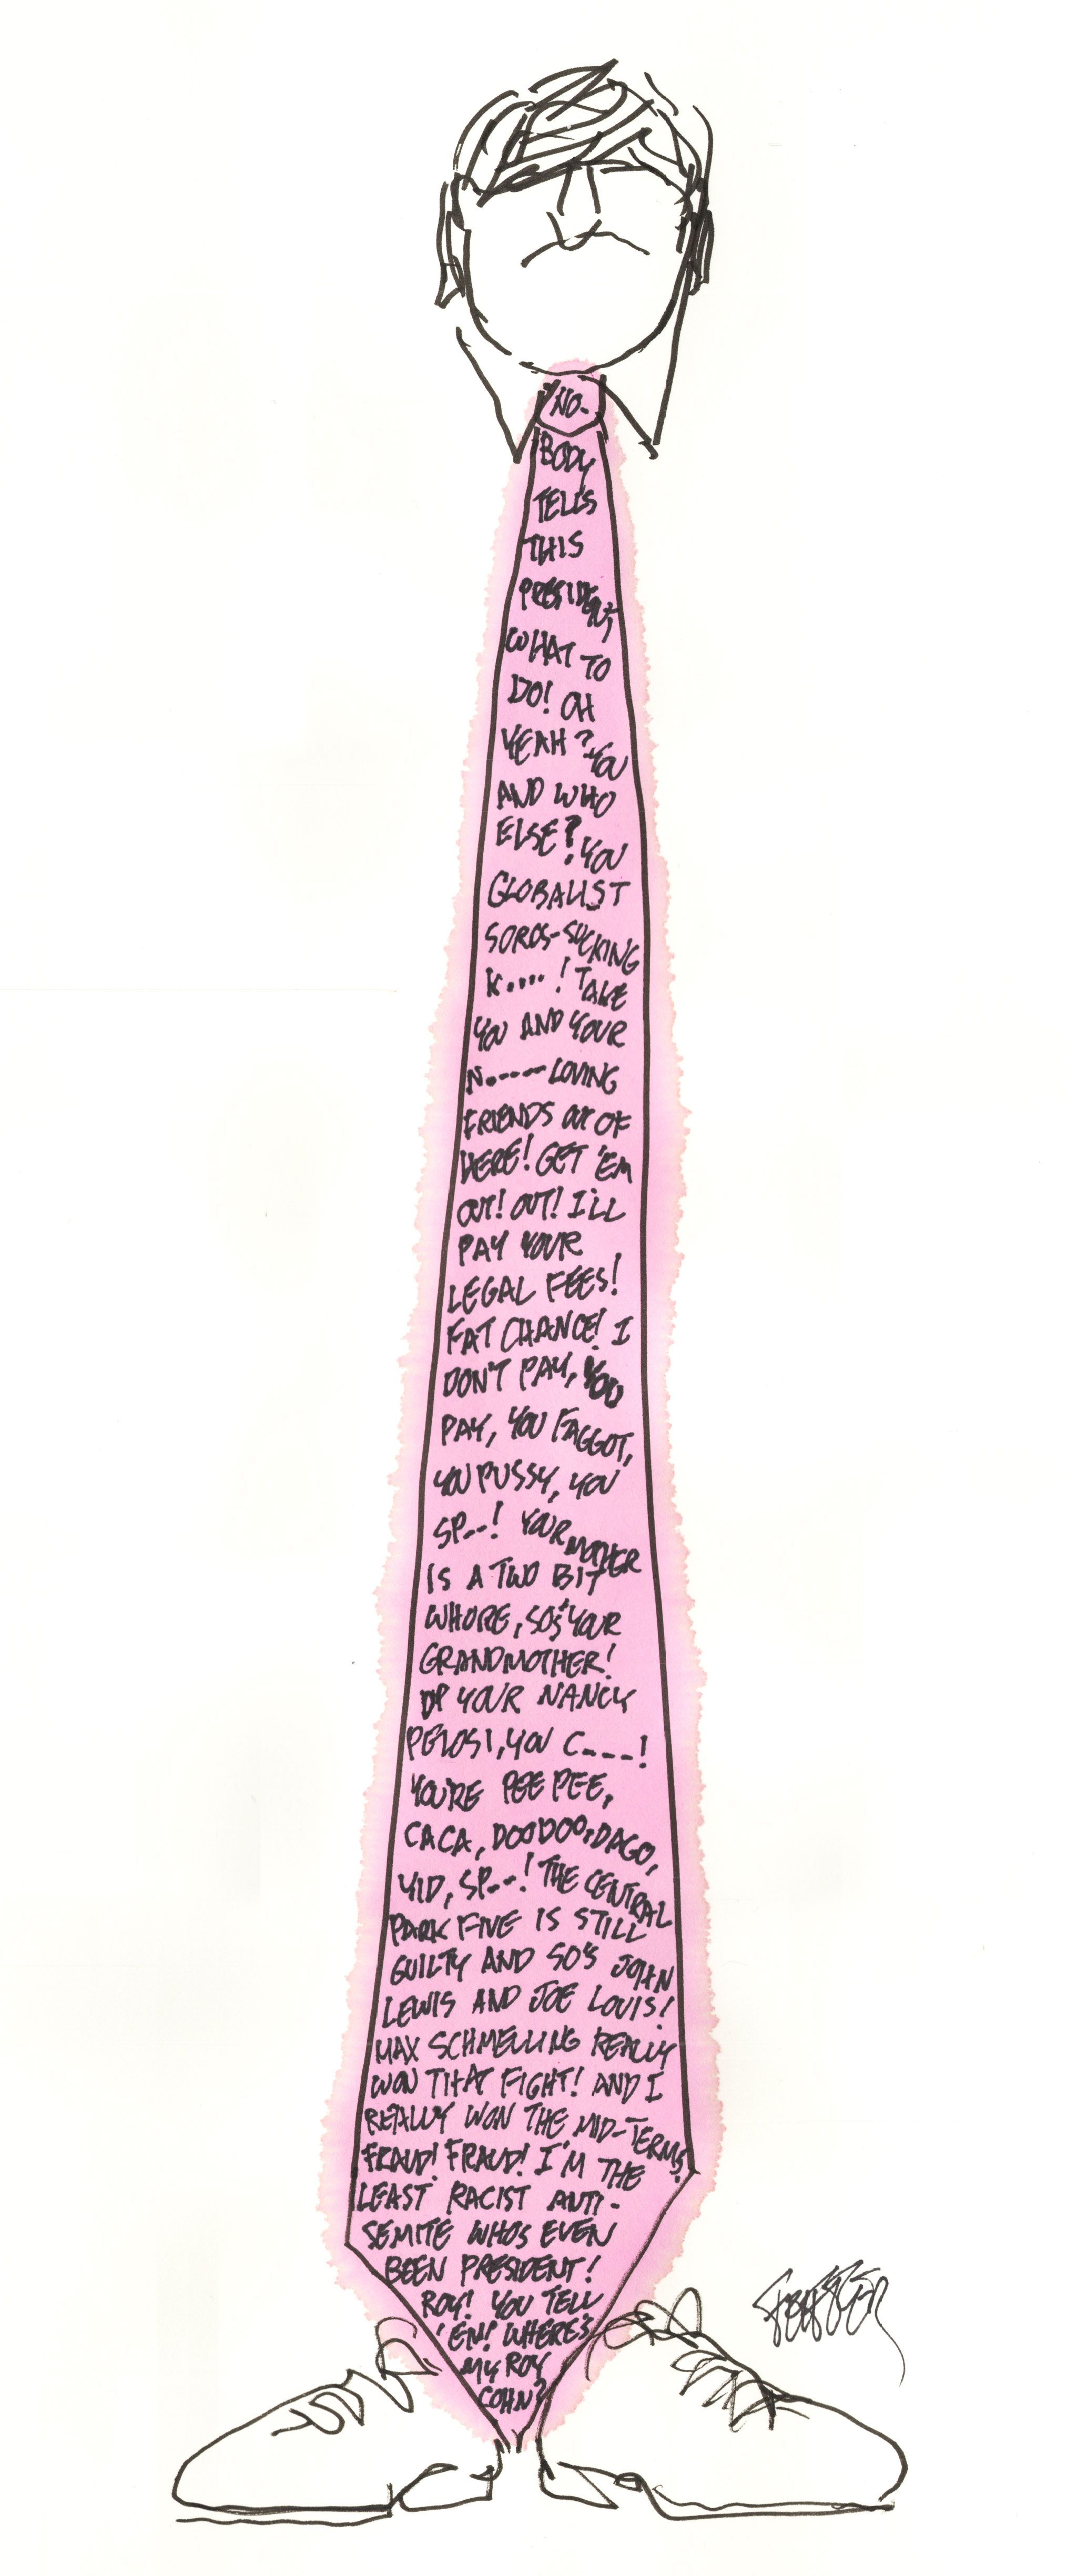 NO-
BODY
TELLS
THIS
PRESIDENT
WHAT TO
DO! OH
YEAH? YOU
AND WHO
ELSE? YOU
GLOBALIST
SOROS-SUCKING
K....! TAKE
YOU AND YOUR
N.----- LOVING
FRIENDS OUT OF
HERE! GET 'EM
OUT! OUT! I'LL
PAY YOUR
LEGAL FEES!
FAT CHANCE! I
DON'T PAY, YOU
PAY, YOU FAGGOT,
YOU PUSSY, YOU
SP--! YOUR MOTHER
IS A TWO BIT
WHORE, SO'S YOUR
GRANDMOTHER!
UP YOUR NANCY
PELOSI, YOU C---!
YOU'RE PEE PEE,
CACA, DOODOO, DAGO,
YID, SP--! THE CENTRAL
PARK FIVE IS STILL
GUILTY AND SO'S JOHN
LEWIS AND JOE LOUIS!
MAX SCHMELLING REALLY
WON THAT FIGHT! AND I
REALLY WON THE MID-TERMS!
FRAUD! FRAUD! I'M THE
LEAST RACIST ANTI-
SEMITE WHO'S EVEN
BEEN PRESIDENT!
ROY! YOU TELL
'EM! WHERE'S
MY ROY
COHN?
FEIFFER